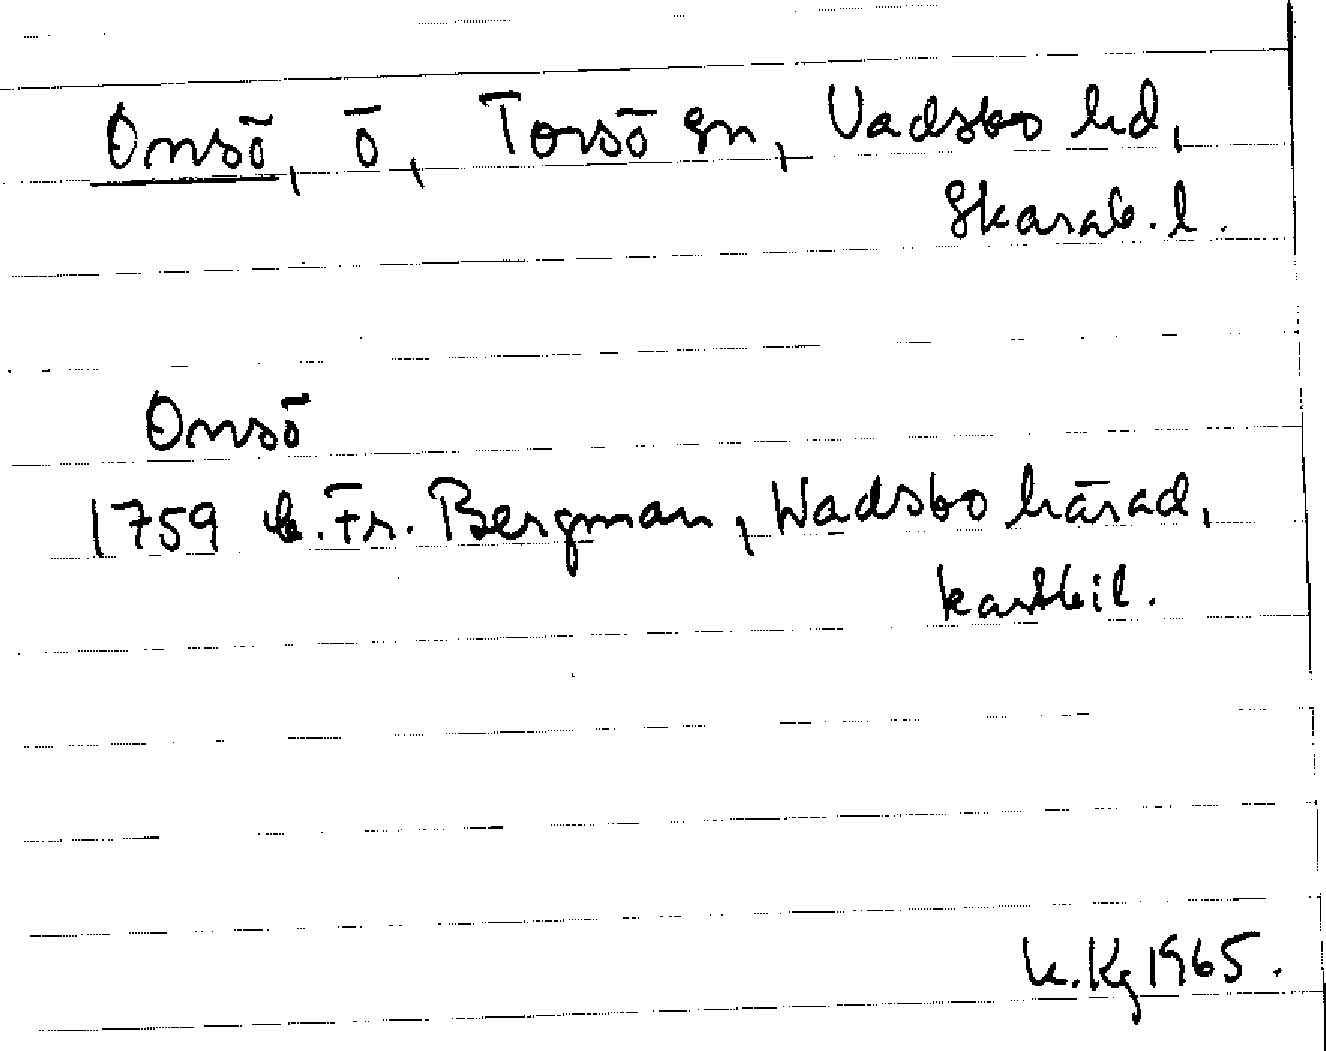 Onsö, ö, Torsö sn, Vadsbo hd,
Skarab. l.
Onsö
1759 Fr. Bergman, Wadsbo härad,
kartbil.
Kg 1965.